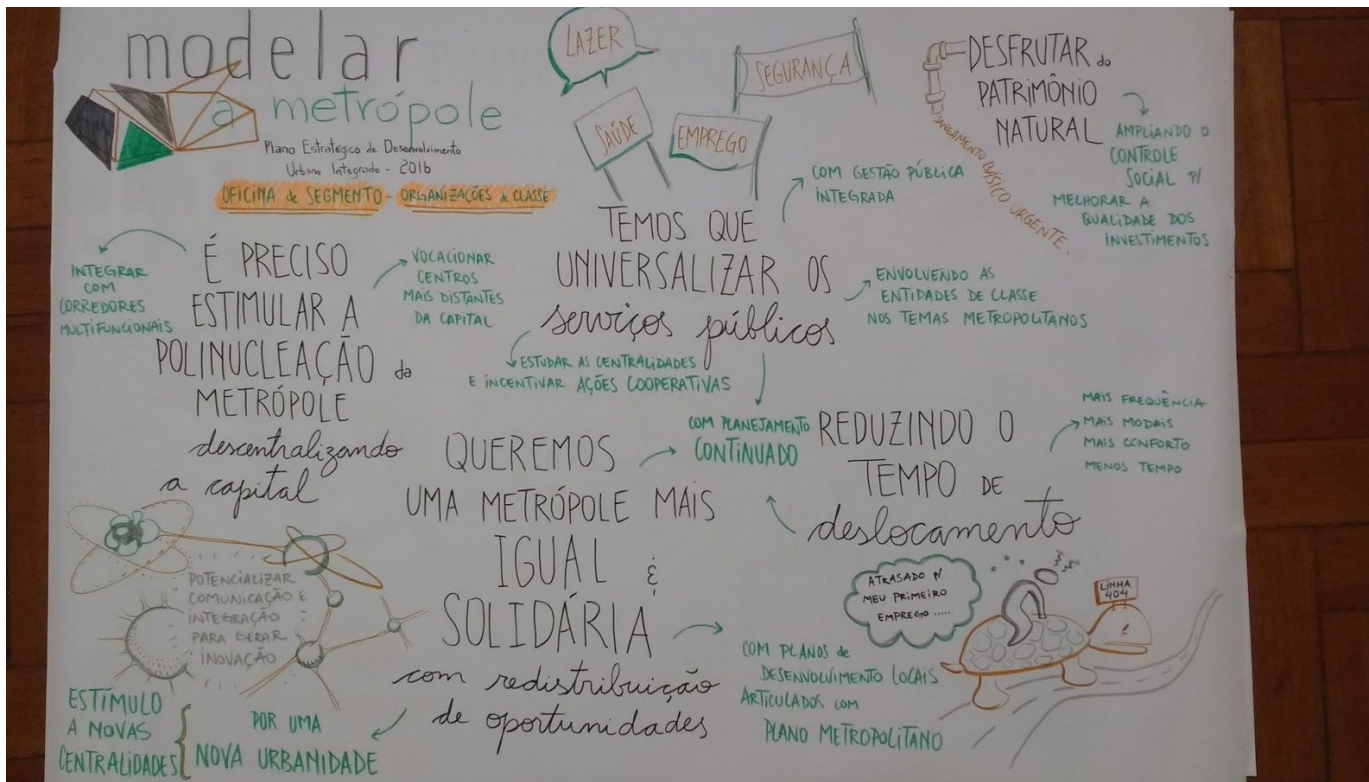 modelar
a metrópole
Plano Estratégico de Desenvolvimento
Urbano Integrado - 2016
OFICINA de SEGMENTO - ORGANIZAÇÕES de CLASSE
LAZER
SEGURANÇA
SAÚDE
EMPREGO
DESFRUTAR do
PATRIMÔNIO
NATURAL
SANEAMENTO BÁSICO URGENTE...
AMPLIANDO O
CONTROLE
SOCIAL P/
MELHORAR A
QUALIDADE DOS
INVESTIMENTOS
É PRECISO
ESTIMULAR A
POLINUCLEAÇÃO da
METRÓPOLE
descentralizando
a capital
INTEGRAR
COM
CORREDORES
MULTIFUNCIONAIS
VOCACIONAR
CENTROS
MAIS DISTANTES
DA CAPITAL
TEMOS QUE
UNIVERSALIZAR OS
serviços públicos
COM GESTÃO PÚBLICA
INTEGRADA
ENVOLVENDO AS
ENTIDADES DE CLASSE
NOS TEMAS METROPOLITANOS
ESTUDAR AS CENTRALIDADES
E INCENTIVAR AÇÕES COOPERATIVAS
COM PLANEJAMENTO
CONTINUADO
REDUZINDO O
TEMPO DE
deslocamento
MAIS FREQUÊNCIA
MAIS MODAIS
MAIS CONFORTO
MENOS TEMPO
QUEREMOS
UMA METRÓPOLE MAIS
IGUAL &
SOLIDÁRIA
com redistribuição
de oportunidades
POTENCIALIZAR
COMUNICAÇÃO E
INTEGRAÇÃO
PARA GERAR
INOVAÇÃO
ESTÍMULO
A NOVAS
CENTRALIDADES
POR UMA
NOVA URBANIDADE
COM PLANOS de
DESENVOLVIMENTO LOCAIS
ARTICULADOS COM
PLANO METROPOLITANO
ATRASADO P/
MEU PRIMEIRO
EMPREGO.....
LINHA
404